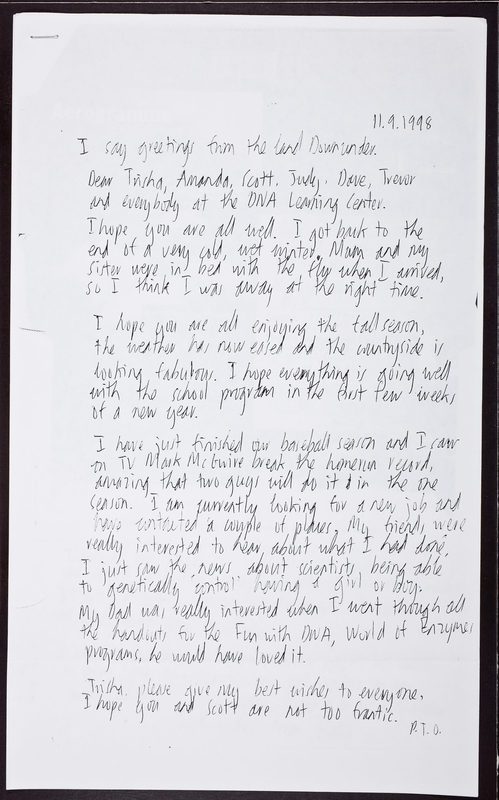 11.9.1998
I say greetings from the land Downunder.
Dear Trisha, Amanda, Scott, Judy, Dave, Trevor
and everybody at the DNA Learning Center.
I hope you are all well. I got back to the
end of a very cold, wet winter. Mum and my
sister were in bed with the flu when I arrived,
so I think I was away at the right time.
I hope you are all enjoying the fall season,
the weather has now eased and the countryside is
looking fabulous. I hope everything is going well
with the school program in the first few weeks
of a new year.
I have just finished our baseball season and I saw
on TV Mark McGwire break the homerun record,
amazing that two guys will do it in the one
season. I am currently looking for a new job and
have contacted a couple of places. My friends were
really interested to hear about what I had done.
I just saw the news about scientists being able
to genetically control having a girl or boy.
My Dad was really interested when I went though all
the handouts for the Fun with DNA, World of Enzymes
programs, he would have loved it.
Trisha, please give my best wishes to everyone,
I hope you and Scott are not too frantic.
P.T.O.